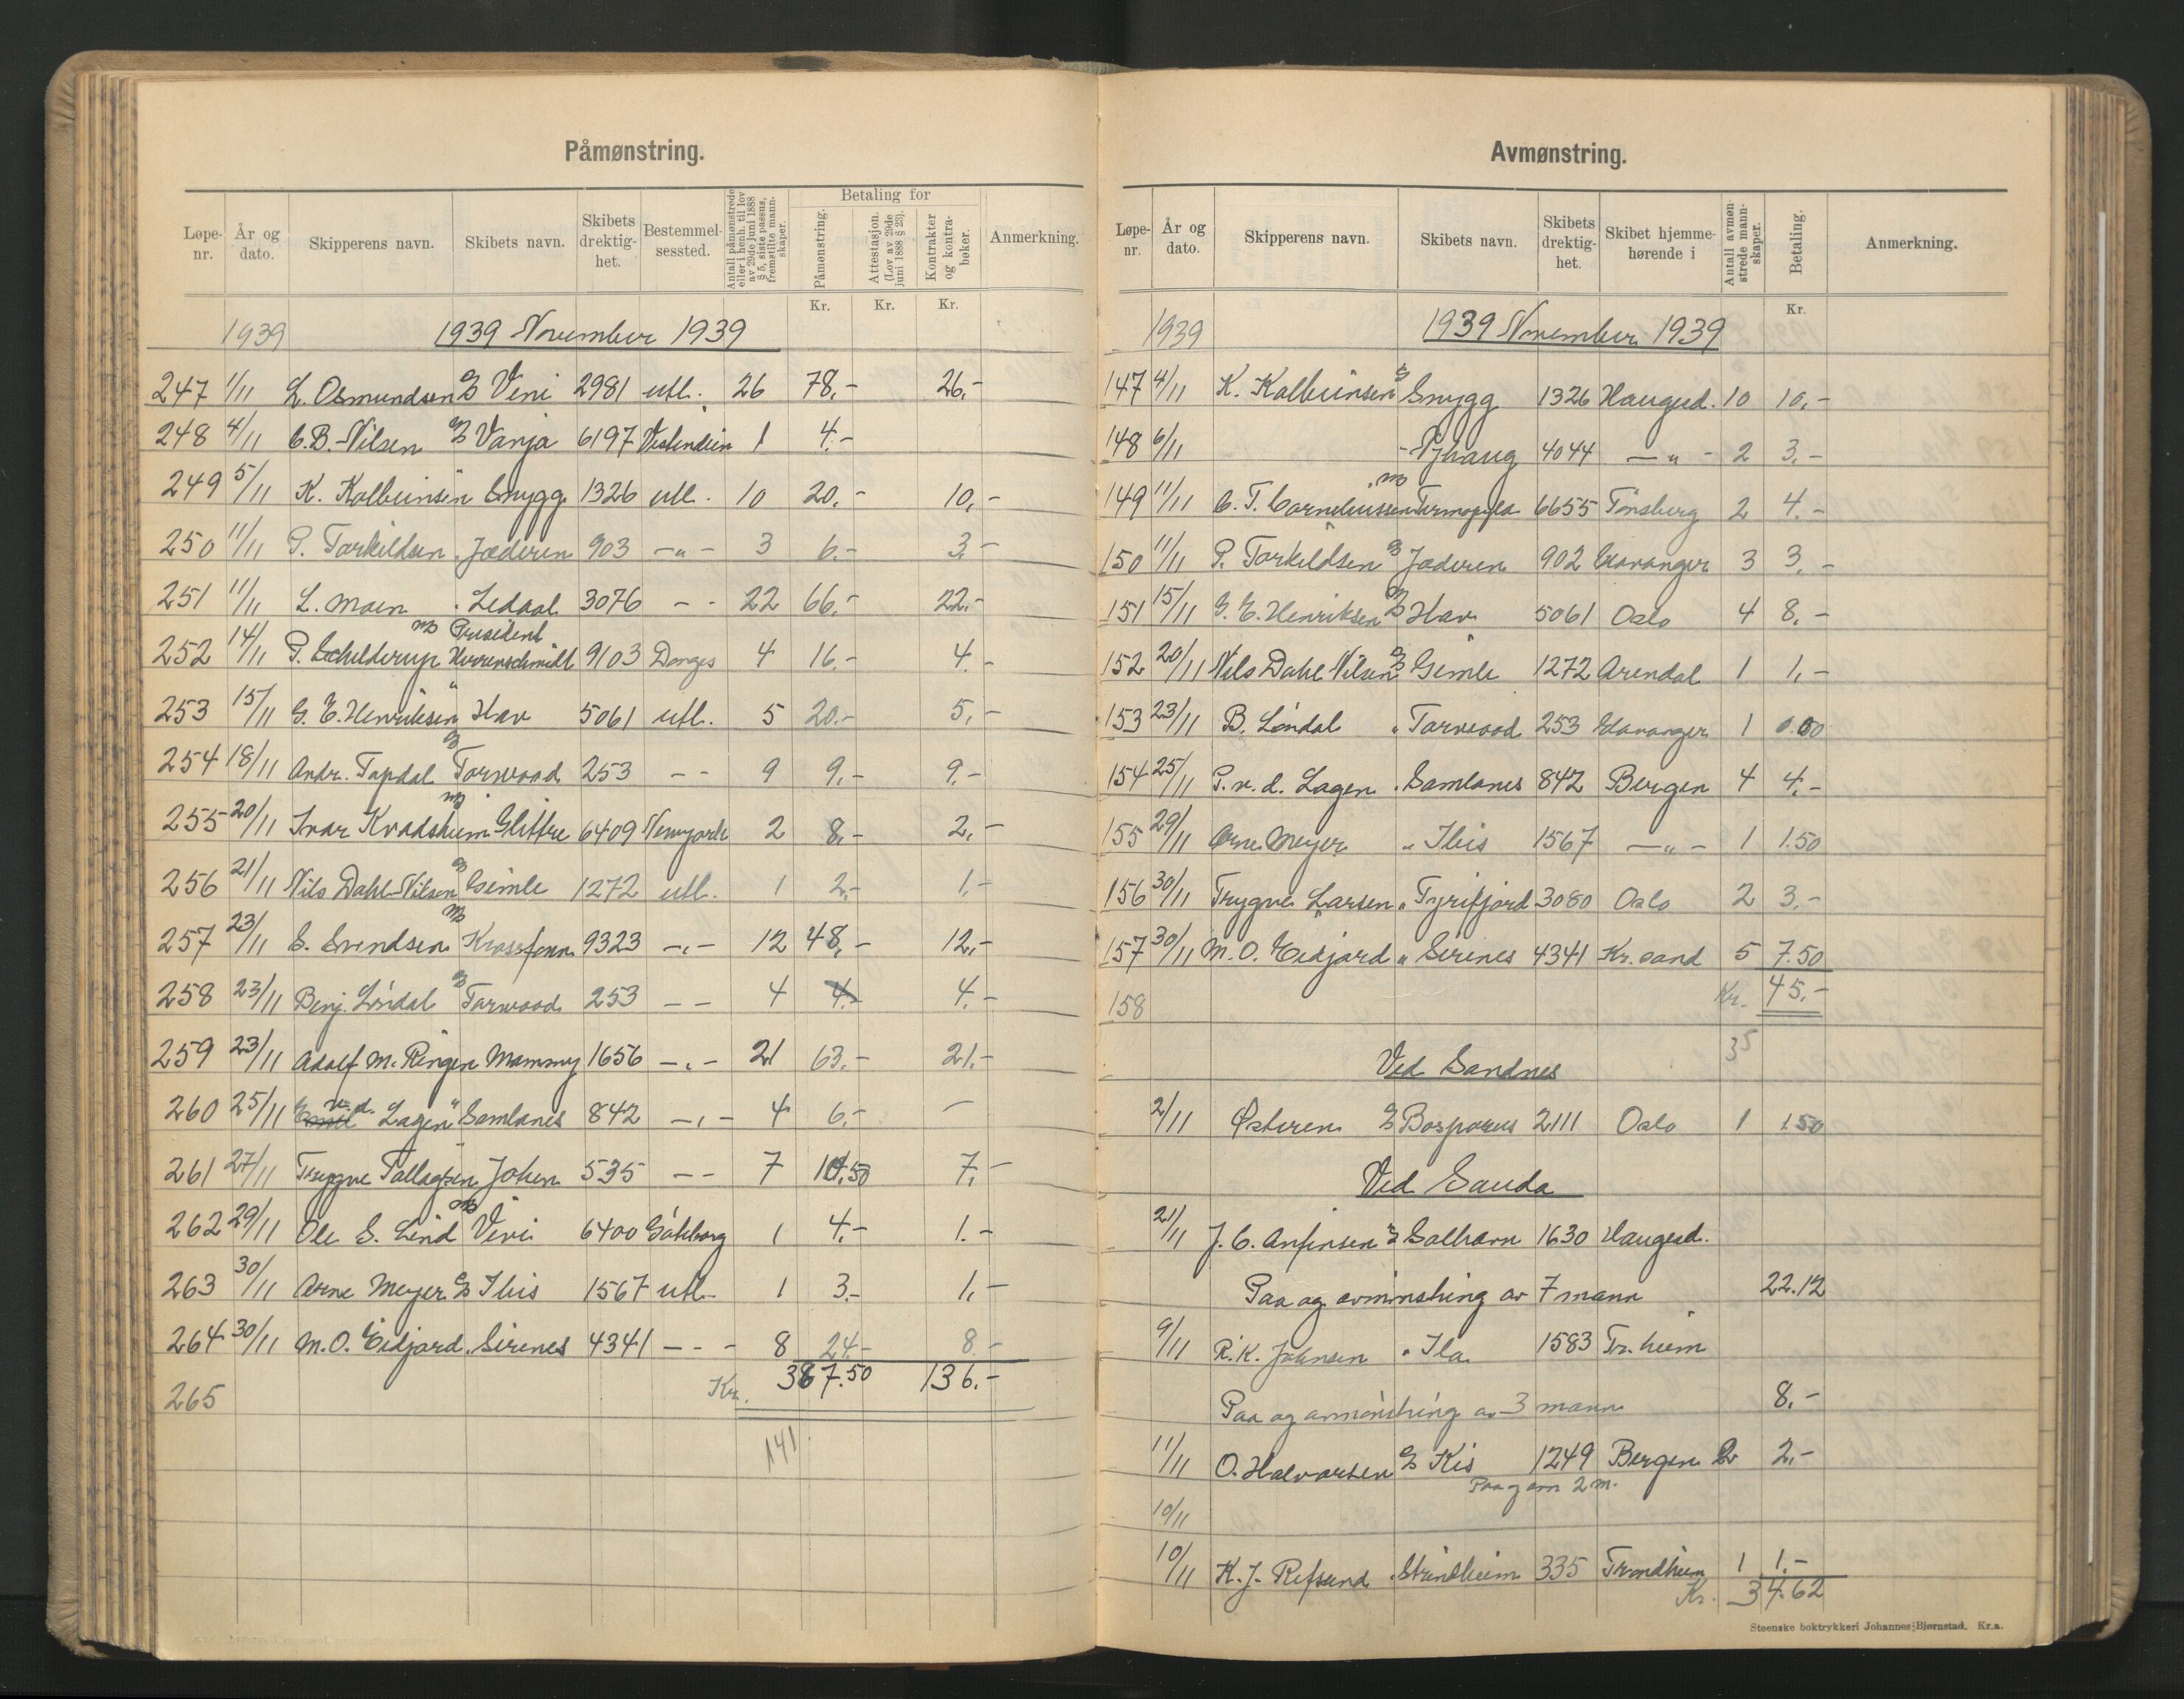 Påmønstring.
Løpe-nr. År og dato. Skipperens navn. Skibets navn. Skibets drektig-het. Bestemmel-sessted. Antall påmønstrede eller i henh. til lov av 29de juni 1888 § 5, siste passus, fremstilte mann-skaper. Betaling for Påmønstring. Attestasjon. (Lov av 29de juni 1888 § 23). Kontrakter og kontra-bøker. Anmerkning.
Kr. Kr. Kr.
1939 1939 November 1939
247 1/11 L. Osmundsen Veni 2981 utl. 26 78,- 26,-
248 4/11 C.B. Nilsen Vanja 6197 Vestindien 1 4.-
249 5/11 K. Kolbeinsen Snygg 1326 utl. 10 20.- 10,-
250 11/11 P. Torkildsen Jæderen 903 -"- 3 6.- 3.-
251 11/11 L. Moen Ledaal 3076 - - 22 66.- 22.-
252 14/11 P. Schelderup President Herrenschmidt 9103 Donges 4 16.- 4.-
253 15/11 G. E. Henriksen Hav 5061 utl. 5 20.- 5,-
254 18/11 Andr. Topdal Torwood 253 - - 9 9.- 9.-
255 20/11 Ivar Kvadsheim Glittre 6409 Newyork 2 8,- 2,-
256 21/11 Nils Dahl Nilsen Gimle 1272 utl. 1 2.- 1,-
257 23/11 S. Svendsen Krossfonn 9323 -,- 12 48,- 12,-
258 23/11 Benj. Löndal Torwood 253 - - 4 4.- 4.-
259 23/11 Adolf M. Ringen Mammy 1656 -.- 21 63.- 21.-
260 25/11 v. d. Lagen " Samlanes 842 -,- 4 6.- -
261 27/11 Trygve Tallagsen Johan 535 - - 7 10.50 7.-
262 29/11 Ole S. Lind Vivi 6400 Göteborg 1 4.- 1.-
263 30/11 Arne Meyer Ibis 1567 utl. 1 3.- 1,-
264 30/11 M.O. Eidjord Sirenes 4341 - - - 8 24.- 8.-
265 Kr. 387.50 136.-
141
Avmønstring.
Løpe-nr. År og dato. Skipperens navn. Skibets navn. Skibets drektig-het. Skibet hjemme-hørende i Antall avmøn-strede mann-skaper. Betaling. Anmerkning.
Kr.
1939 1939 November 1939
147 4/11 K. Kolbeinsen Snygg 1326 Haugesd. 10 10,-
148 6/11 4044 -"- 2 3.-
149 11/11 C. T. Corneliussen 6655 Tönsberg 2 4.-
150 11/11 P. Torkildsen Jæderen 902 Stavanger 3 3,-
151 15/11 G. E. Henriksen Hav 5061 Oslo 4 8,-
152 20/11 Nils Dahl Nilsen Gimle 1272 Arendal 1 1,-
153 23/11 B. Löndal " Torwood 253 Stavanger 1 0.50
154 25/11 P. v. d. Lagen Samlanes 842 Bergen 4 4.-
155 29/11 Arne Meyer " Ibis 1567 -"- 1 1.50
156 30/11 Trygve Larsen " Tyrifjord 3080 Oslo 2 3.-
157 30/11 M. O. Eidjord " Sirenes 4341 Kr.sand 5 7.50
158 Kr. 45.-
35
Ved Sandnes
2/11 Østeren Bosporus 2111 Oslo 1 1.50
Ved Sauda
21/11 J. C. Anfinsen Solhavn 1630 Haugesd.
Paa og avmønstring av 7 mann 22.12
9/11 R. K. Johnsen " Ila 1583 Tr.heim
Paa og avmönstring av 3 mann 8,-
11/11 O. Halvorsen Kis 1249 Bergen 2 2,-
Paa og avm 2 m.
10/11
10/11 K. J. Refsund Strindheim 335 Trondheim 1 1.-
Kr. 34.62
Steenske boktrykkeri Johannes Bjørnstad. Kr.a.